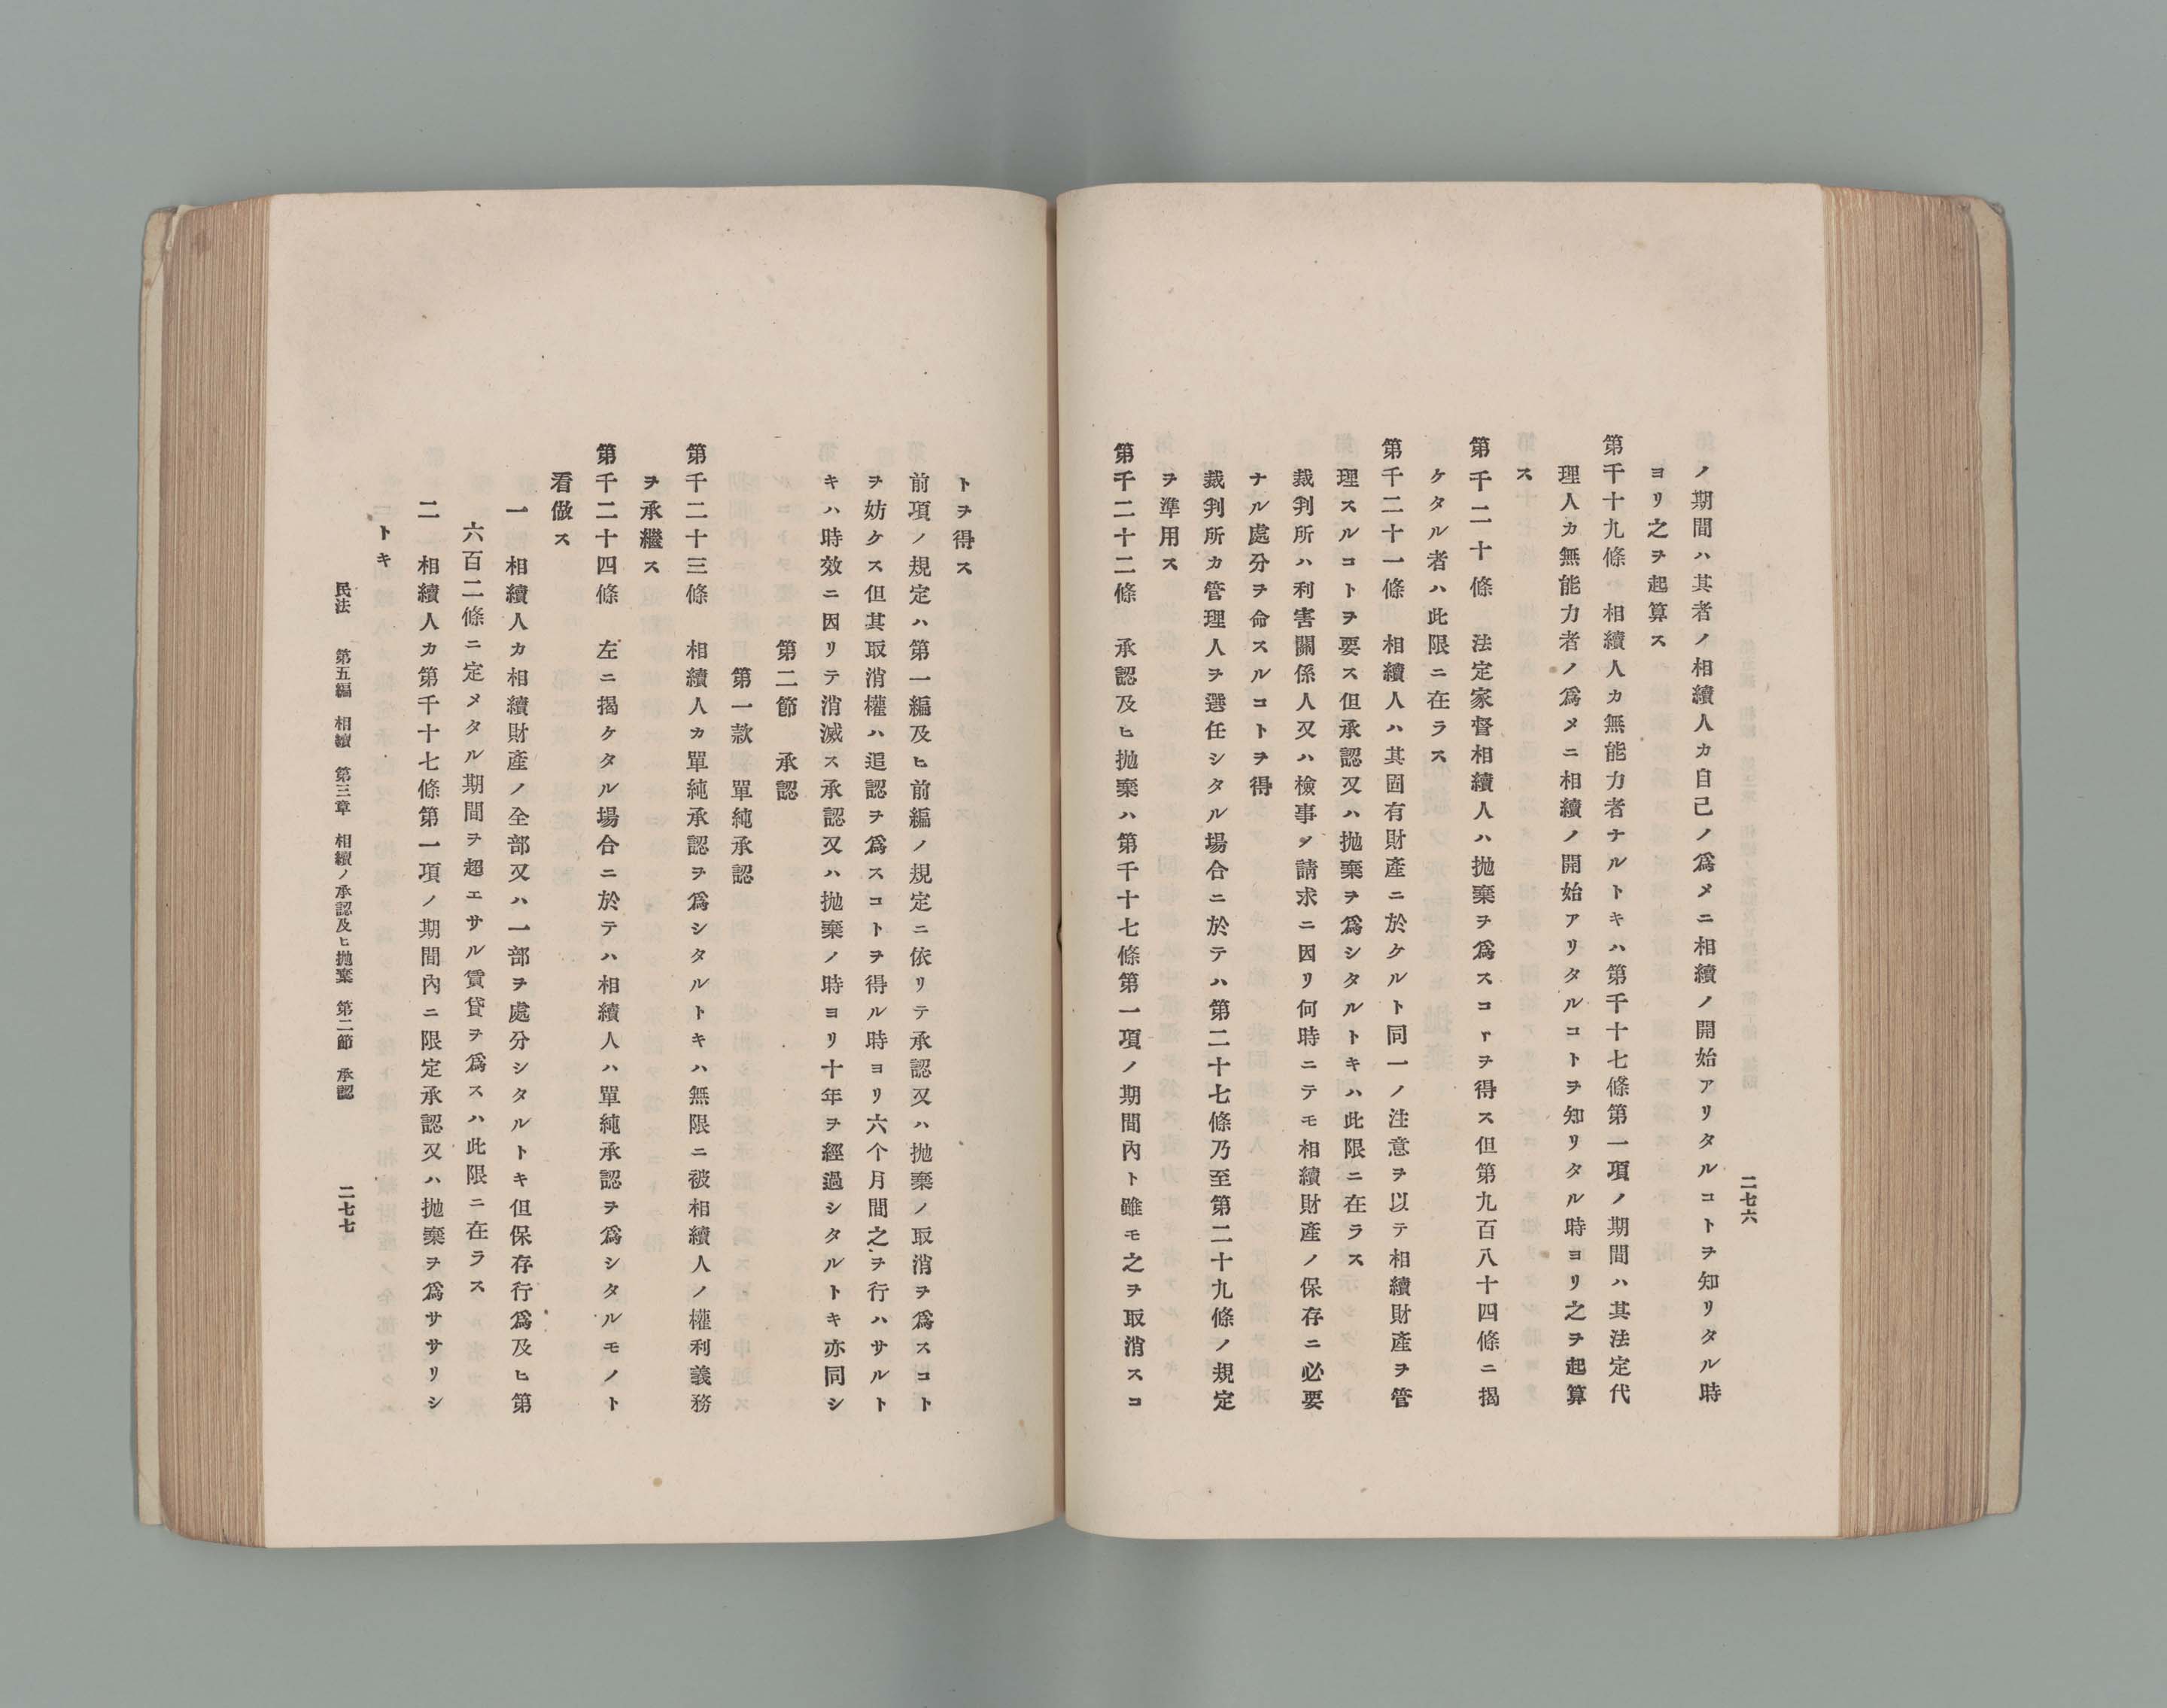 二七六
ノ期間ハ其者ノ相續人カ自己ノ爲メニ相續ノ開始アリタルコトヲ知リタル時
ヨリ之ヲ起算ス
第千十九條 相續人カ無能力者ナルトキハ第千十七條第一項ノ期間ハ其法定代
理人カ無能力者ノ爲メニ相續ノ開始アリタルコトヲ知リタル時ヨリ之ヲ起算
ス
第千二十條 法定家督相續人ハ抛棄ヲ爲スコトヲ得ス但第九百八十四條ニ揭
ケタル者ハ此限ニ在ラス
第千二十一條 相續人ハ其固有財產ニ於ケルト同一ノ注意ヲ以テ相續財產ヲ管
理スルコトヲ要ス但承認又ハ抛棄ヲ爲シタルトキハ此限ニ在ラス
裁判所ハ利害關係人又ハ檢事ノ請求ニ因リ何時ニテモ相續財產ノ保存ニ必要
ナル處分ヲ命スルコトヲ得
裁判所カ管理人ヲ選任シタル場合ニ於テハ第二十七條乃至第二十九條ノ規定
ヲ準用ス
第千二十二條 承認及ヒ抛棄ハ第千十七條第一項ノ期間內ト雖モ之ヲ取消スコ
トヲ得ス
前項ノ規定ハ第一編及ヒ前編ノ規定ニ依リテ承認又ハ抛棄ノ取消ヲ爲スコト
ヲ妨ケス但其取消權ハ追認ヲ爲スコトヲ得ル時ヨリ六个月間之ヲ行ハサルト
キハ時效ニ因リテ消滅ス承認又ハ抛棄ノ時ヨリ十年ヲ經過シタルトキ亦同シ
第二節 承認
第一款 單純承認
第千二十三條 相續人カ單純承認ヲ爲シタルトキハ無限ニ被相續人ノ權利義務
ヲ承繼ス
第千二十四條 左ニ揭ケタル場合ニ於テハ相續人ハ單純承認ヲ爲シタルモノト
看做ス
一 相續人カ相續財產ノ全部又ハ一部ヲ處分シタルトキ但保存行爲及ヒ第
六百二條ニ定メタル期間ヲ超エサル賃貸ヲ爲スハ此限ニ在ラス
二 相續人カ第千十七條第一項ノ期間內ニ限定承認又ハ抛棄ヲ爲サザリシ
トキ
民法 第五編 相續 第三章 相續ノ承認及ヒ抛棄 第二節 承認 二七七